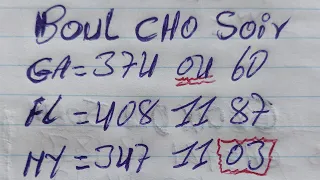 BOUL CHO Soir
GA=374 ou 60
FL=408 11 87
NY=347 11 03